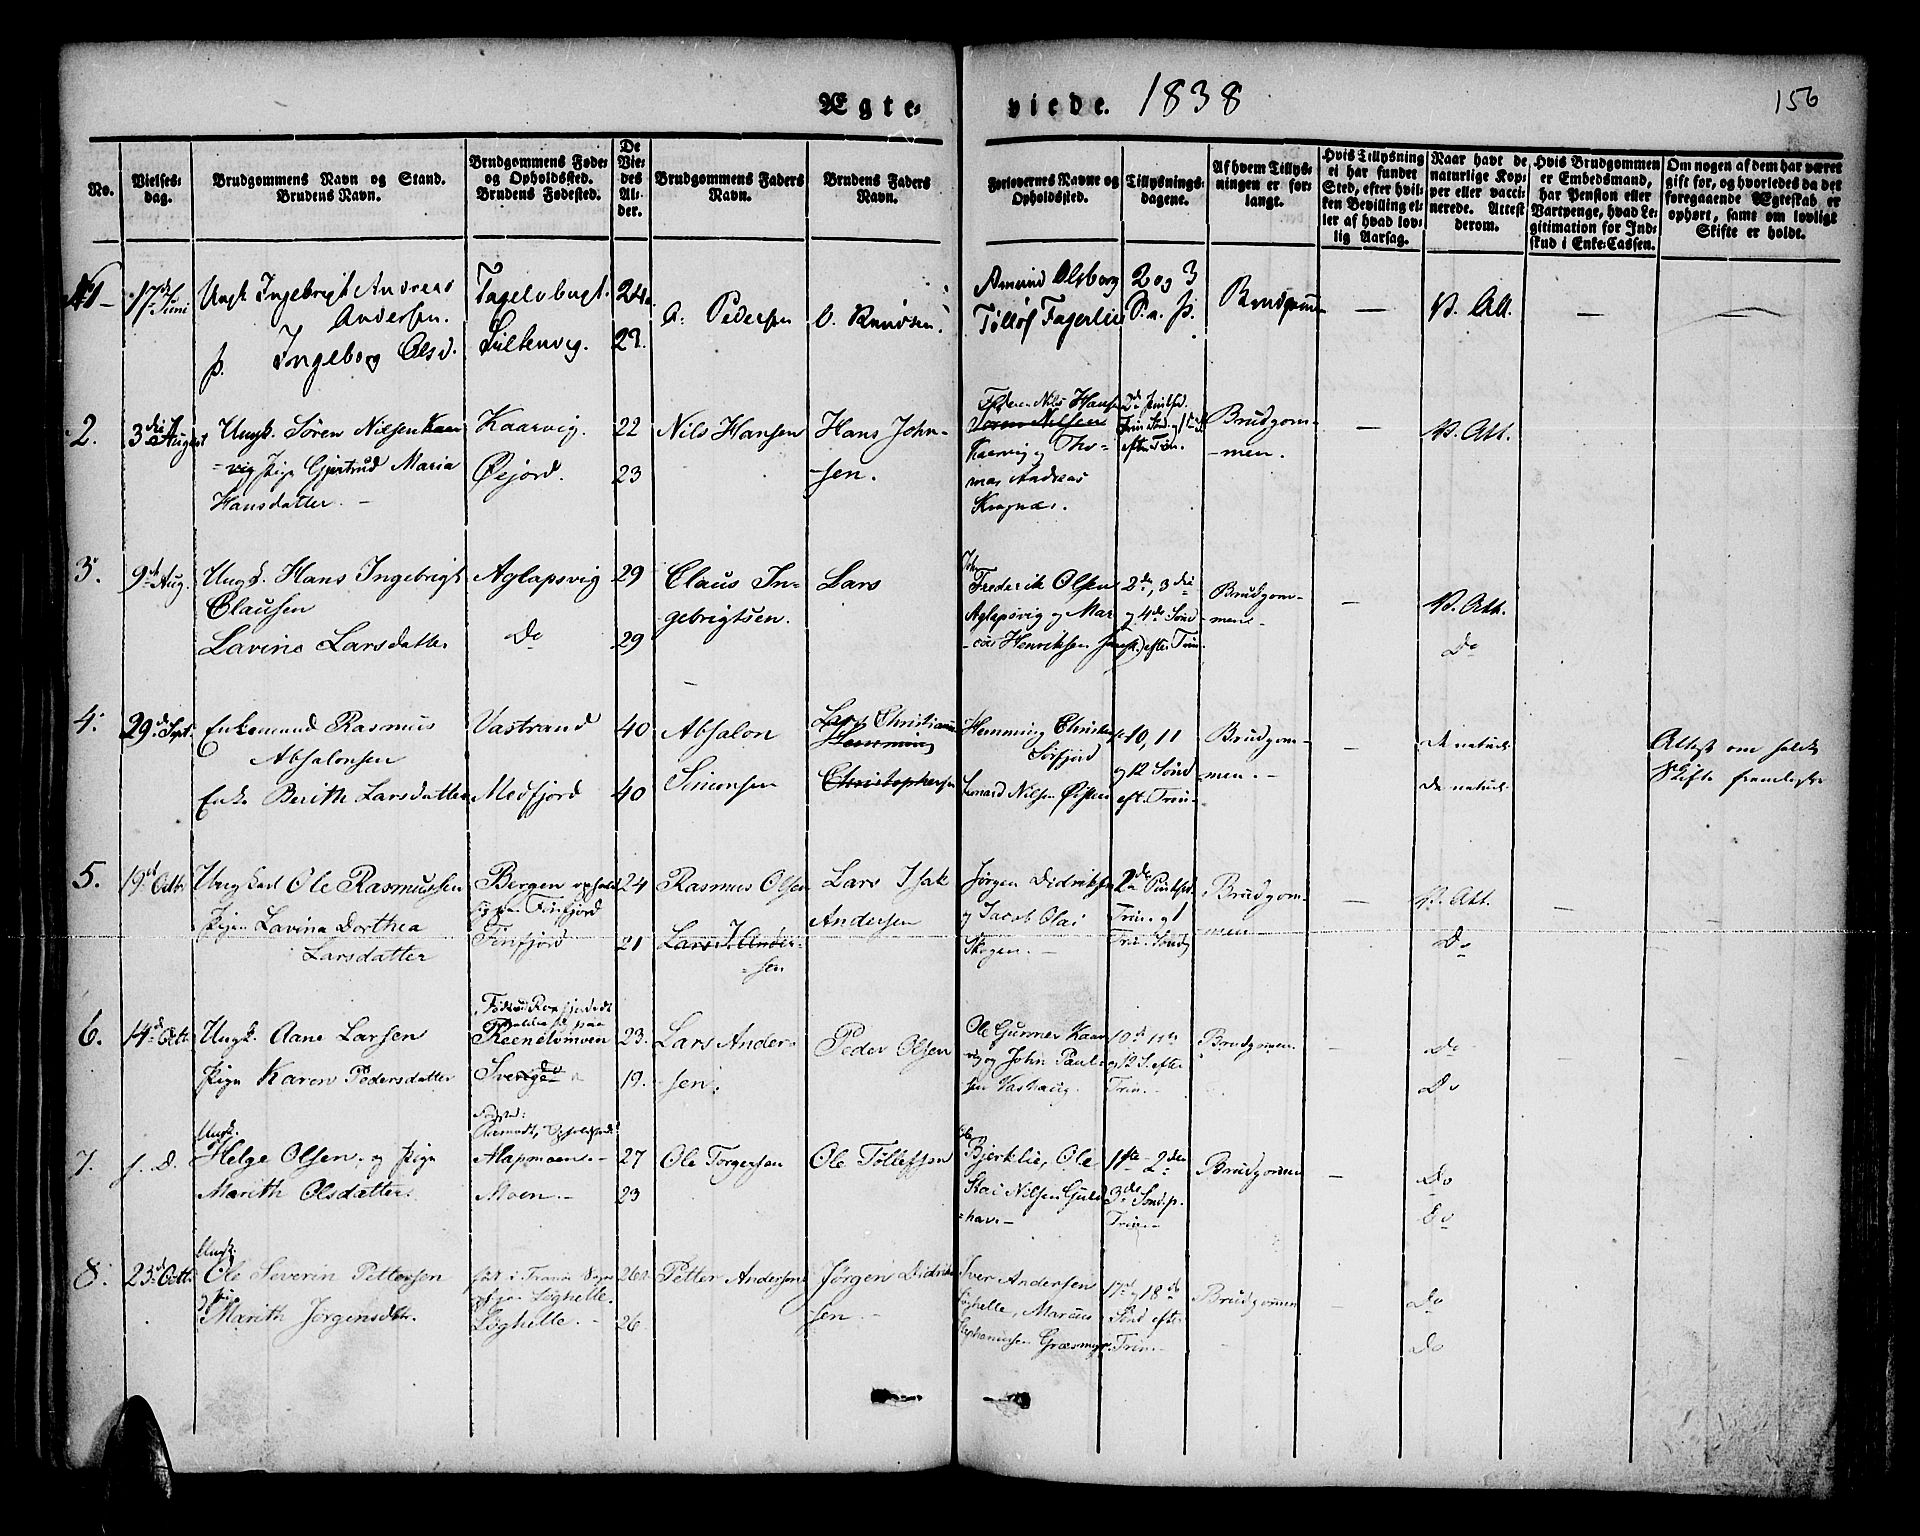 Ægte-
viede. 1838
156
No.
Vielses-
dag.
Brudgommens Navn og Stand.
Brudens Navn.
Brudgommens Føde-
og Opholdssted.
Brudens Fødested.
De
Vie-
des
Al-
der.
Brudgommens Faders
Navn.
Brudens Faders
Navn.
Forlovernes Navne og
Opholdssted.
Tillysnings-
dagene.
Af hvem Tillys-
ningen er for-
langt.
Hvis Tillysning
ei har fundet
Sted, efter hvil-
ken Bevilling el-
ler af hvad lov-
lig Aarsag.
Naar havt de
naturlige Kop-
per eller vacci-
nerede. Attest
derom.
Hvis Brudgommen
er Embedsmand,
har Pension eller
Vartpenge, hvad Le-
gitimation for Ind-
skud i Enke-Cassen.
Om nogen af dem har været
gift før, og hvorledes da det
foregaaende Ægteskab er
ophørt, samt om lovligt
Skifte er holdt.
1 –
17de Juni
Ungk Ingebrigt Andreas
Andersen.
p. Ingeborg Olsd.
24
A. Pedersen
O. Knudsen
Amund Olsborg
Tølløf Fagerlie
2 og 3
S. a. p.
Brudgom
—
V. Att.
—
2.
3die August
Ungk. Søren Nilsen Kaar-
-vig pige Gjertrud Maria
Hansdatter. –
Kaarvig.
Øejord.
22
23
Nils Hansen
Hans John-
-sen.
Nils Hansen
Søren Nilsen
Kaarvig og Tho-
mas Andreas
Kragnæs.
efter Trin.
Brudgom-
-men.
—
V. Att.
3.
9de Aug.
Ungk. Hans Ingebrigt
Clausen
Lavine Larsdatter
Aglapsvig
Do
29
29
Claus In-
gebrigtsen.
Lars
Frederik Olsen
Aglapsvig og Mar-
-cus Henriksen
2den, 3die
og 4de Sønd
efter Trin.
Brudgom-
mens
—
V. Att.
Do
4.
29de Sept.
Enkemand Rasmus
Absalonsen
Enke Berith Larsdatter
Vastrand
Medfjord
40
40
Absalon
Simonsen
Lars Christian
Hemming
Christophersen
Hemming Christen
Sørfjord
Leonard Nilsen
10, 11
og 12 Sønd
eft. Trin
Brudgom-
men. –
—
de naturl.
de naturl.
Attest om holdt
Skifte fremlagt
5.
19de Octb.
Ungkarl Ole Rasmussen
Pigen Lavina Dorthea
Larsdatter
Bergen ophold
Finfjord
Finfjord
24
21
Rasmus Olsen
Lars I. Ander-
-sen
Lars Isak
Andersen
Jørgen Didriksen
og Jacob Olai
Skogen. –
Trin. og 1
Trin. Sønd
Brudgom-
men –
—
V. Att.
Do
—
6.
14de Octb.
Ungk. Aane Larsen
Pige Karen Pedersdatter
Sverige
23.
19.
Lars Ander-
-sen.
Peder Olsen
Ole Gunner Kaar-
vig og John Paul-
sen Vashaug.
10de 11te
og 12 S. efter
Trin. –
Brudgommen
—
Do
Do
7.
s. D.
Ungk.
Helge Olsen. og Pige
Marith Olsdatter.
Alapmoen. –
Moen. –
27
23
Ole Torgersen
Ole Tollefsen
Bjerklie, Ole
Nilsen Guld-
-hav. –
1ste 2den
3die Sønd. p.
Trin. –
Brudgommen
—
Do
Do
8.
23de Octb.
Ungk.
Ole Severin Pettersen
og pige
Marith Jørgensdtr.
Løghelle. –
26
26
Petter Andersen
Jørgen Didrik-
sen. –
Iver Andersen
Løghelle, Marcus
Stephanussen Græsmyr
17de og 18de
Sønd. efter
Trin. –
Brudgommen
—
Do
Do